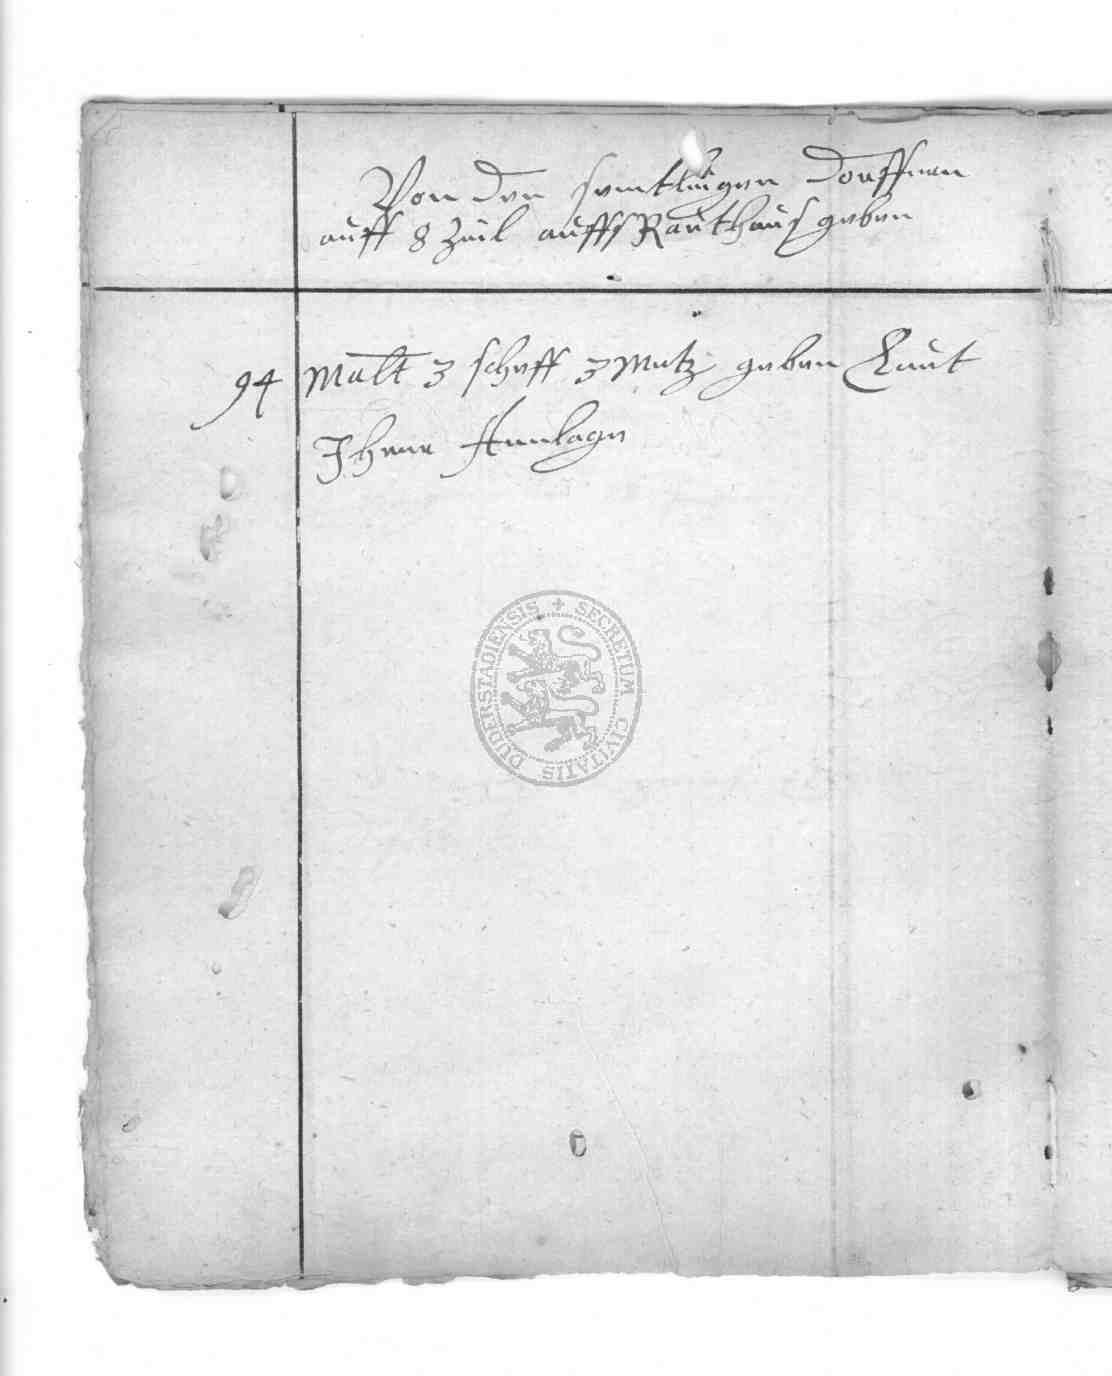 Von den semtligen Dorffern
auff 8 Zeil auffs Rauthaus geben
94 Malt 3 scheff 3 Metz geben Laut
Ihrer Anlage
SECRETUM CIVITATIS DUDERSTADIENSIS